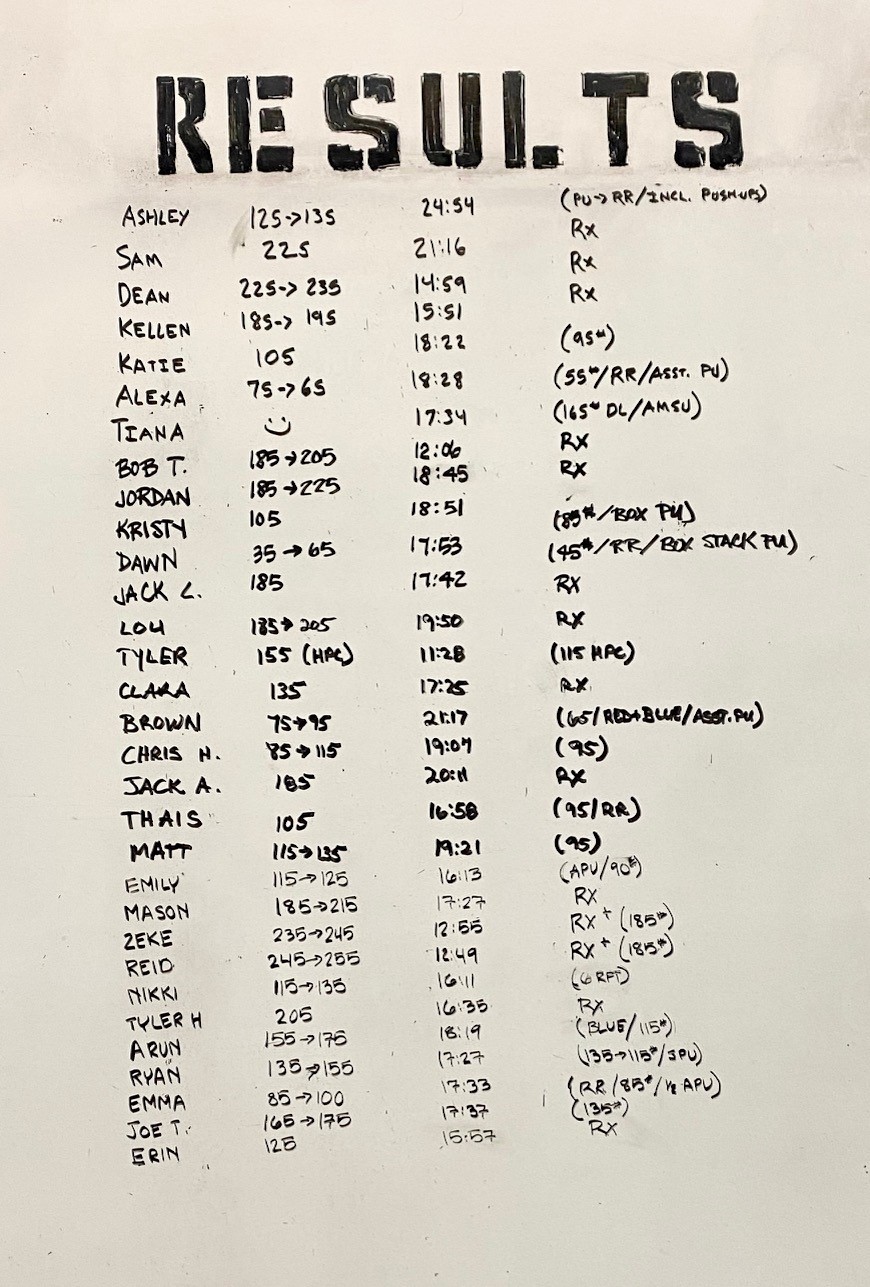 RESULTS
ASHLEY 125->135 24:54 (PU->RR/INCL. PUSHUPS)
SAM 225 21:16 Rx
DEAN 225-> 235 14:59 Rx
KELLEN 185-> 195 15:51 Rx
KATIE 105 18:22 (95#)
ALEXA 75->65 18:28 (55#/RR/ASST. PU)
TIANA 17:34 (165# DL/AMSU)
BOB T. 185→205 12:06 RX
JORDAN 185→225 18:45 RX
KRISTY 105 18:51 (85#/BOX PU)
DAWN 35→65 17:53 (45#/RR/BOX STACK PU)
JACK L. 185 17:42 RX
LOU 185→205 19:50 RX
TYLER 155 (HPC) 11:28 (115 HPC)
CLARA 135 17:25 RX
BROWN 75→95 21:17 (65/RED+BLUE/ASST.PU)
CHRIS H. 85→115 19:07 (95)
JACK A. 185 20:11 RX
THAIS 105 16:58 (95/RR)
MATT 115→135 19:21 (95)
EMILY 115→125 16:13 (APU/90#)
MASON 185→215 17:27 RX
ZEKE 235→245 12:55 RX+ (185#)
REID 245→255 12:49 RX+ (185#)
NIKKI 115→135 16:11 (6 RFT)
TYLER H 205 16:35 RX
ARUN 155→175 18:19 (BLUE/115#)
RYAN 135→155 17:27 (135→115#/JPU)
EMMA 85→100 17:33 (RR/85#/½ APU)
JOE T. 165→175 17:37 (135#)
ERIN 125 15:57 RX